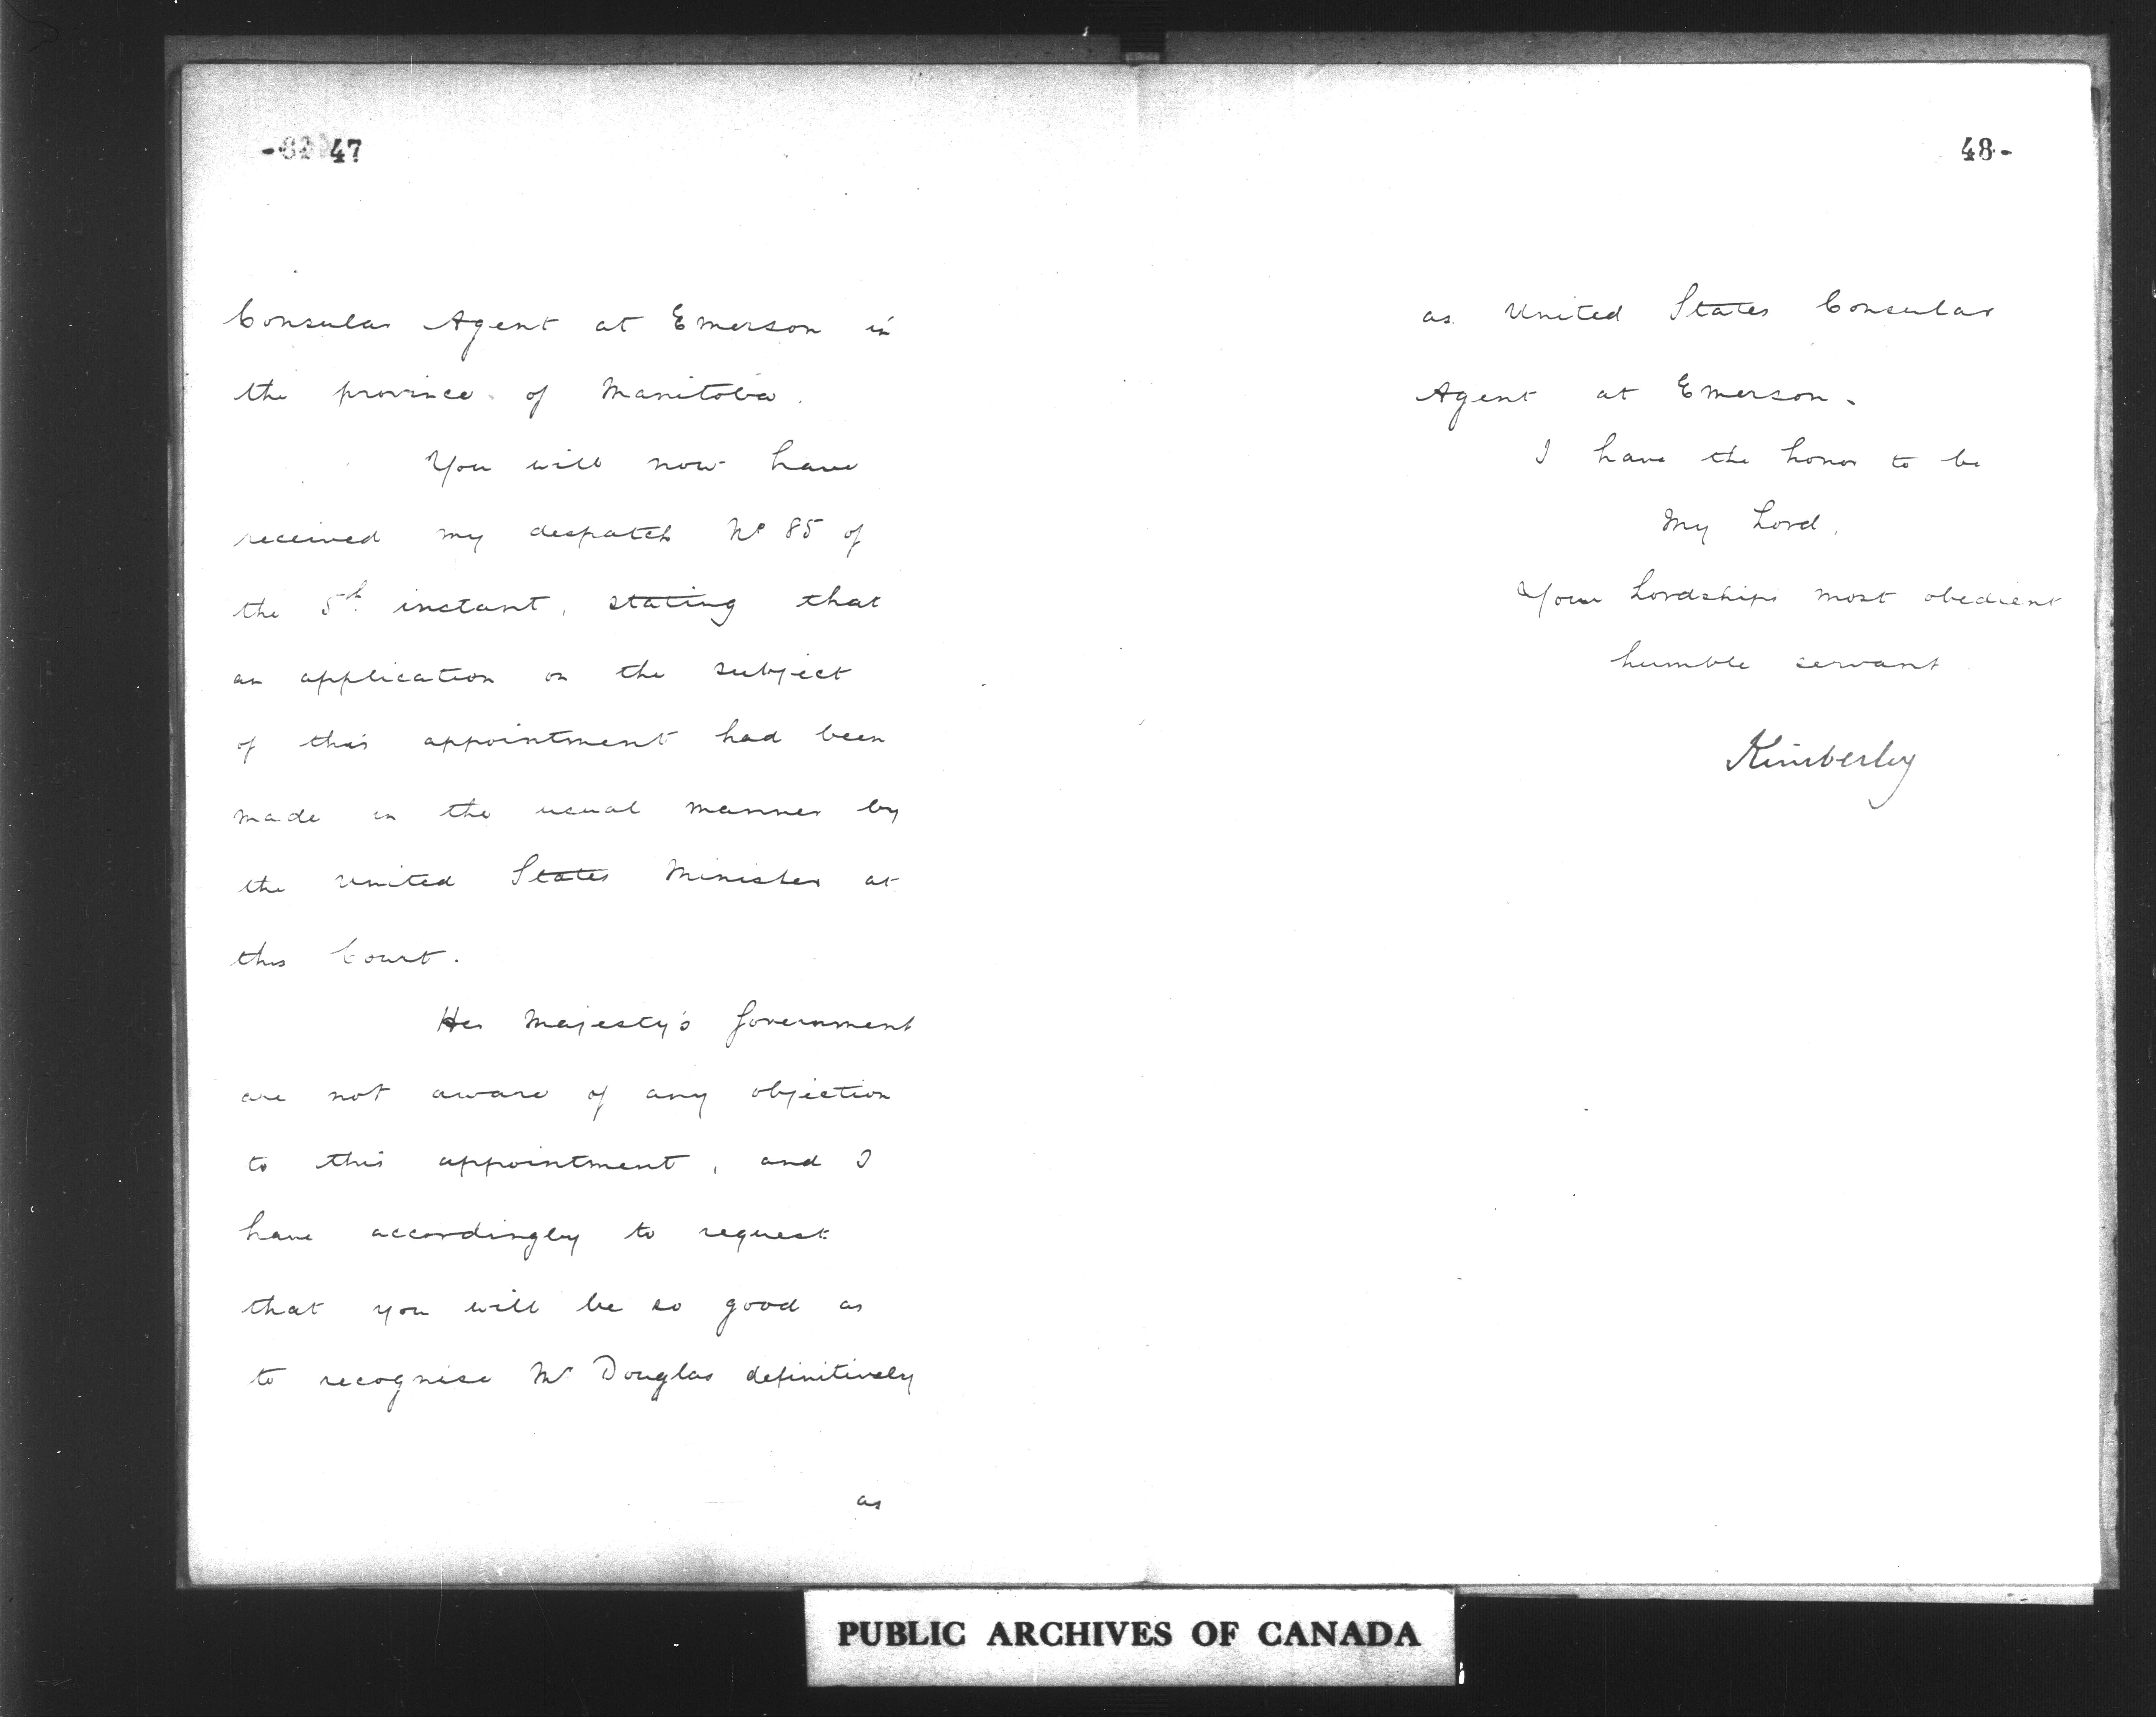 47
Consular Agent at Emerson in
the province of Manitoba.
You will now have
received my despatch No 85 of
the 5th instant, stating that
an application on the subject
of this appointment had been
made in the usual manner by
the United States Minister at
this Court.
Her Majesty's Government
are not aware of any objection
to this appointment, and I
have accordingly to request
that you will be so good as
to recognise Mr Douglas definitively
as
48-
as United States Consular
Agent at Emerson.
I have the honor to be
My Lord,
Your Lordships most obedient
humble servant
Kimberley
PUBLIC ARCHIVES OF CANADA